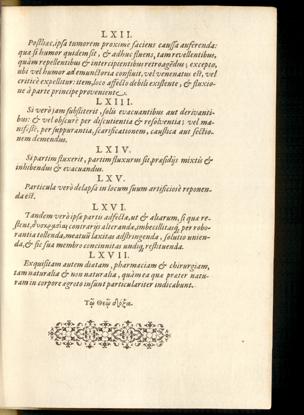 LXII.
Posthac, ipsa tumorem proxime faciens caussa auferenda:
quæ si humor quidem sit, & adhuc fluens, tam revellentibus,
quàm repellentibus & intercipientibus retroagēdus, excepto,
ubi vel humor ad emunctoria confluit, vel venenatus est, vel
criticè expellitur: item, loco affecto debili existente, & fluxio-
ne à parte principe proveniente.
LXIII.
Si verò jam substiterit, solis evacuantibus aut derivanti-
bus: & vel obscurè per discutientia & resolventia; vel ma-
nifestè, per suppurantia, scarificationem, caustica aut sectio-
nem demendus.
LXIV.
Si partim fluxerit, partim fluxurus sit, præsidijs mixtis &
inhibendus & evacuandus.
LXV.
Particula verò delapsa in locum suum artificiosè reponen-
da est.
LXVI.
Tandem verò ipsa parti adfecta, ut & aliarum, si quæ re-
stent, contrarijs alterandæ, imbecillitasq́ per robo-
rantia tollenda, meatuũ laxitas adstringenda, solutio unien-
da, & sic sua membro concinnitas undiq́ restituenda.
LXVII.
Exquisitam autem diætam, pharmaciam & chirurgiam,
tam naturalia & non naturalia, quàm ea quæ præter natu-
ram in corpore ægroto insunt particulariter indicabunt.
Τῷ Θεῷ δόξα.